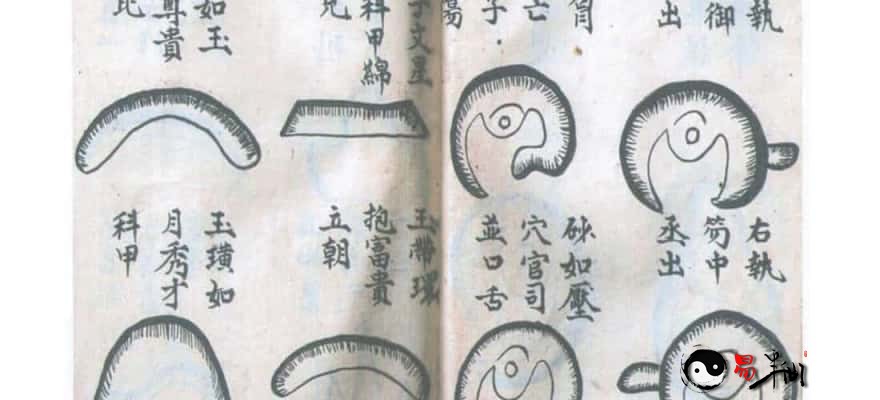 執
御
出
亡
子
子文星
科甲綿
如玉
尊貴
右執
笏中
丞出
砂如壓
穴官司
並口舌
玉帶環
抱富貴
立朝
玉璜如
月秀才
科甲
易